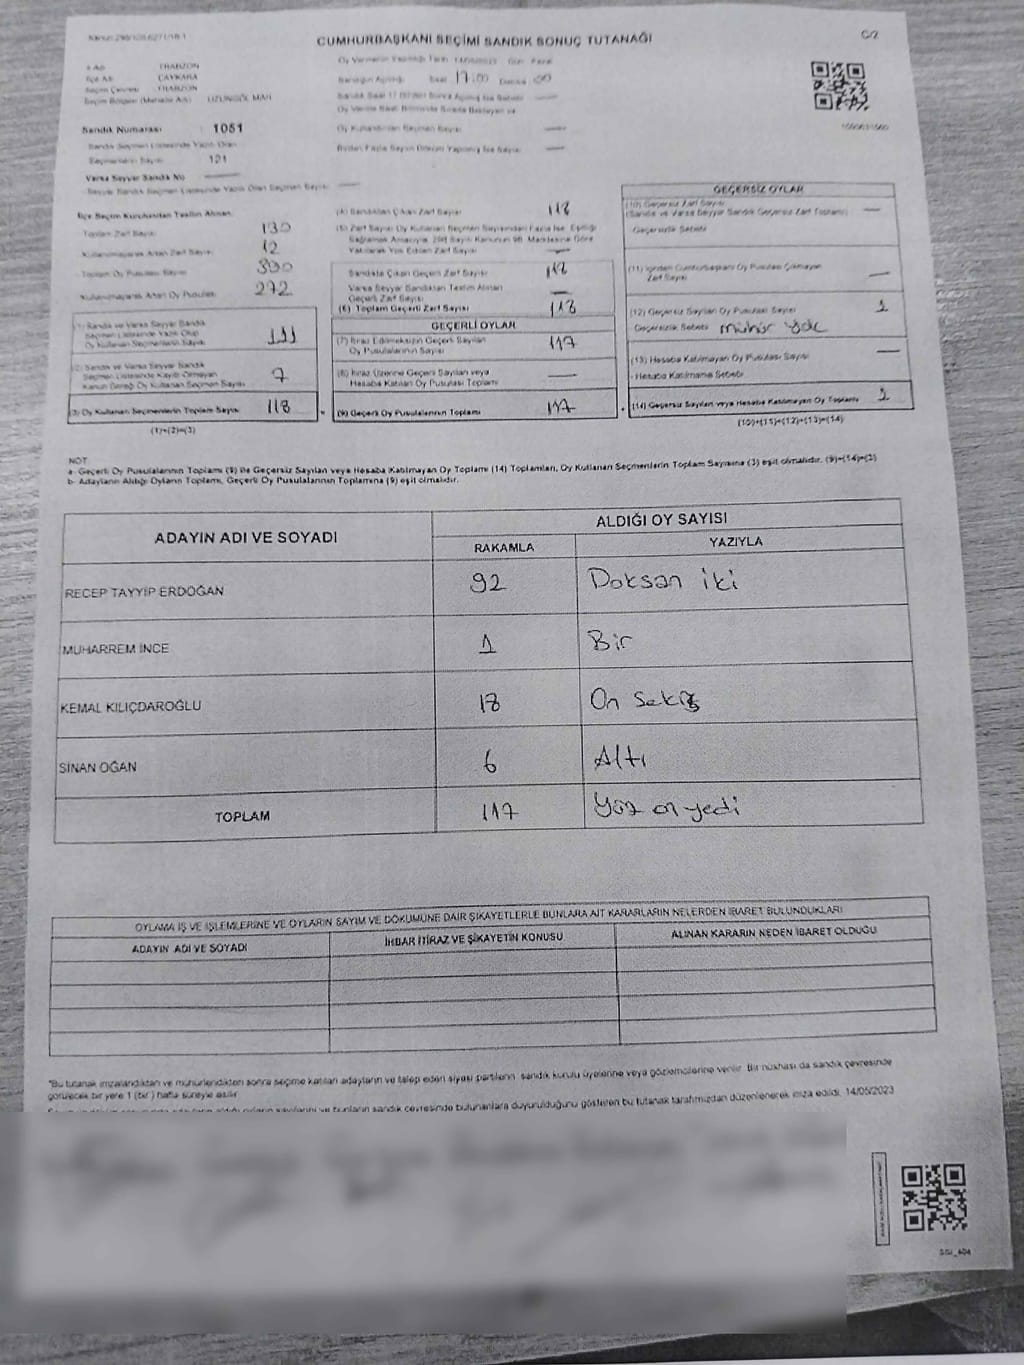 CUMHURBAŞKANI SEÇİMİ SANDIK SONUÇ TUTANAĞI
C/2
İl Adı TRABZON
İlçe Adı ÇAYKARA
Seçim Çevresi TRABZON
Seçim Bölgesi (Mahalle Adı) UZUNGÖL MAH
Sandık Numarası : 1051
Sandık Seçmen Listesinde Yazılı Olan
Seçmenlerin Sayısı 121
Varsa Seyyar Sandık No —
Seyyar Sandık Seçmen Listesinde Yazılı Olan Seçmen Sayısı —
Oy Vermenin Yapıldığı Tarih 14/05/2023 Gün Pazar
Sandığın Açıldığı Saat 17:00 Dakika 00
Oy Kullandırılan Seçmen Sayısı —
Birden Fazla Sayım Döküm Yapılmış İse Sayısı —
İlçe Seçim Kurulundan Teslim Alınan
Toplam Zarf Sayısı 130
Kullanılmayarak Artan Zarf Sayısı 12
Toplam Oy Pusulası Sayısı 390
Kullanılmayarak Artan Oy Pusulası 272
(1) Sandık ve Varsa Seyyar Sandık
Seçmen Listesinde Yazılı Olup
Oy Kullanan Seçmenlerin Sayısı 111
(2) Sandık ve Varsa Seyyar Sandık
Seçmen Listesinde Kayıtlı Olmayan
Kanun Gereği Oy Kullanan Seçmen Sayısı 7
(3) Oy Kullanan Seçmenlerin Toplam Sayısı 118
(1)+(2)=(3)
(4) Sandıktan Çıkan Zarf Sayısı 118
(5) Zarf Sayısı Oy Kullanan Seçmen Sayısından Fazla İse, Eşitliği
Sağlamak Amacıyla, 298 Sayılı Kanunun 98. Maddesine Göre
Yakılarak Yok Edilen Zarf Sayısı —
Sandıkta Çıkan Geçerli Zarf Sayısı 118
Varsa Seyyar Sandıktan Teslim Alınan
Geçerli Zarf Sayısı —
(6) Toplam Geçerli Zarf Sayısı 118
GEÇERLİ OYLAR
(7) İtiraz Edilmeksizin Geçerli Sayılan
Oy Pusulalarının Sayısı 117
(8) İtiraz Üzerine Geçerli Sayılan veya
Hesaba Katılan Oy Pusulası Toplamı —
(9) Geçerli Oy Pusulalarının Toplamı 117
GEÇERSİZ OYLAR
(10) Geçersiz Zarf Sayısı
(Sandık ve Varsa Seyyar Sandık Geçersiz Zarf Toplamı) —
Geçersizlik Sebebi
(11) İçinden Cumhurbaşkanı Oy Pusulası Çıkmayan
Zarf Sayısı —
(12) Geçersiz Sayılan Oy Pusulası Sayısı 1
Geçersizlik Sebebi mühür yok
(13) Hesaba Katılmayan Oy Pusulası Sayısı —
- Hesaba Katılmama Sebebi
(14) Geçersiz Sayılan veya Hesaba Katılmayan Oy Toplamı 1
(10)+(11)+(12)+(13)=(14)
NOT
a- Geçerli Oy Pusulalarının Toplamı (9) ile Geçersiz Sayılan veya Hesaba Katılmayan Oy Toplamı (14) Toplamları, Oy Kullanan Seçmenlerin Toplam Sayısına (3) eşit olmalıdır. (9)+(14)=(3)
b- Adayların Aldığı Oyların Toplamı, Geçerli Oy Pusulalarının Toplamına (9) eşit olmalıdır.
ADAYIN ADI VE SOYADI
ALDIĞI OY SAYISI
RAKAMLA YAZIYLA
RECEP TAYYİP ERDOĞAN 92 Doksan iki
MUHARREM İNCE 1 Bir
KEMAL KILIÇDAROĞLU 18 On Sekiz
SİNAN OĞAN 6 Altı
TOPLAM 117 Yüz on yedi
OYLAMA İŞ VE İŞLEMLERİNE VE OYLARIN SAYIM VE DÖKÜMÜNE DAİR ŞİKAYETLERLE BUNLARA AİT KARARLARIN NELERDEN İBARET BULUNDUKLARI
ADAYIN ADI VE SOYADI İHBAR İTİRAZ VE ŞİKAYETİN KONUSU ALINAN KARARIN NEDEN İBARET OLDUĞU
"Bu tutanak imzalandıktan ve mühürlendikten sonra seçime katılan adayların ve talep eden siyasi partilerin sandık kurulu üyelerine veya gözlemcilerine verilir. Bir nüshası da sandık çevresinde
görülecek bir yere 1 (bir) hafta süreyle asılır.
bunların sandık çevresinde bulunanlara duyurulduğunu gösteren bu tutanak tarafımızdan düzenlenerek imza edildi. 14/05/2023